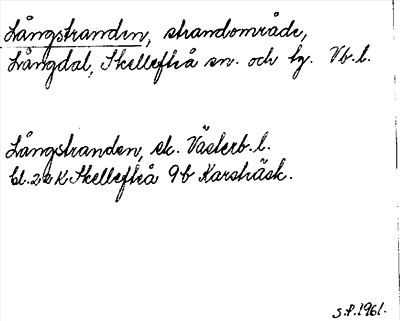 Långstranden, strandområde,
Långdal, Skellefteå sn. och tg. Vb. l.
Långstranden, ek. Västerb. l.
bl. 22 K Skellefteå 9b Karsträsk.
S.P. 1961.